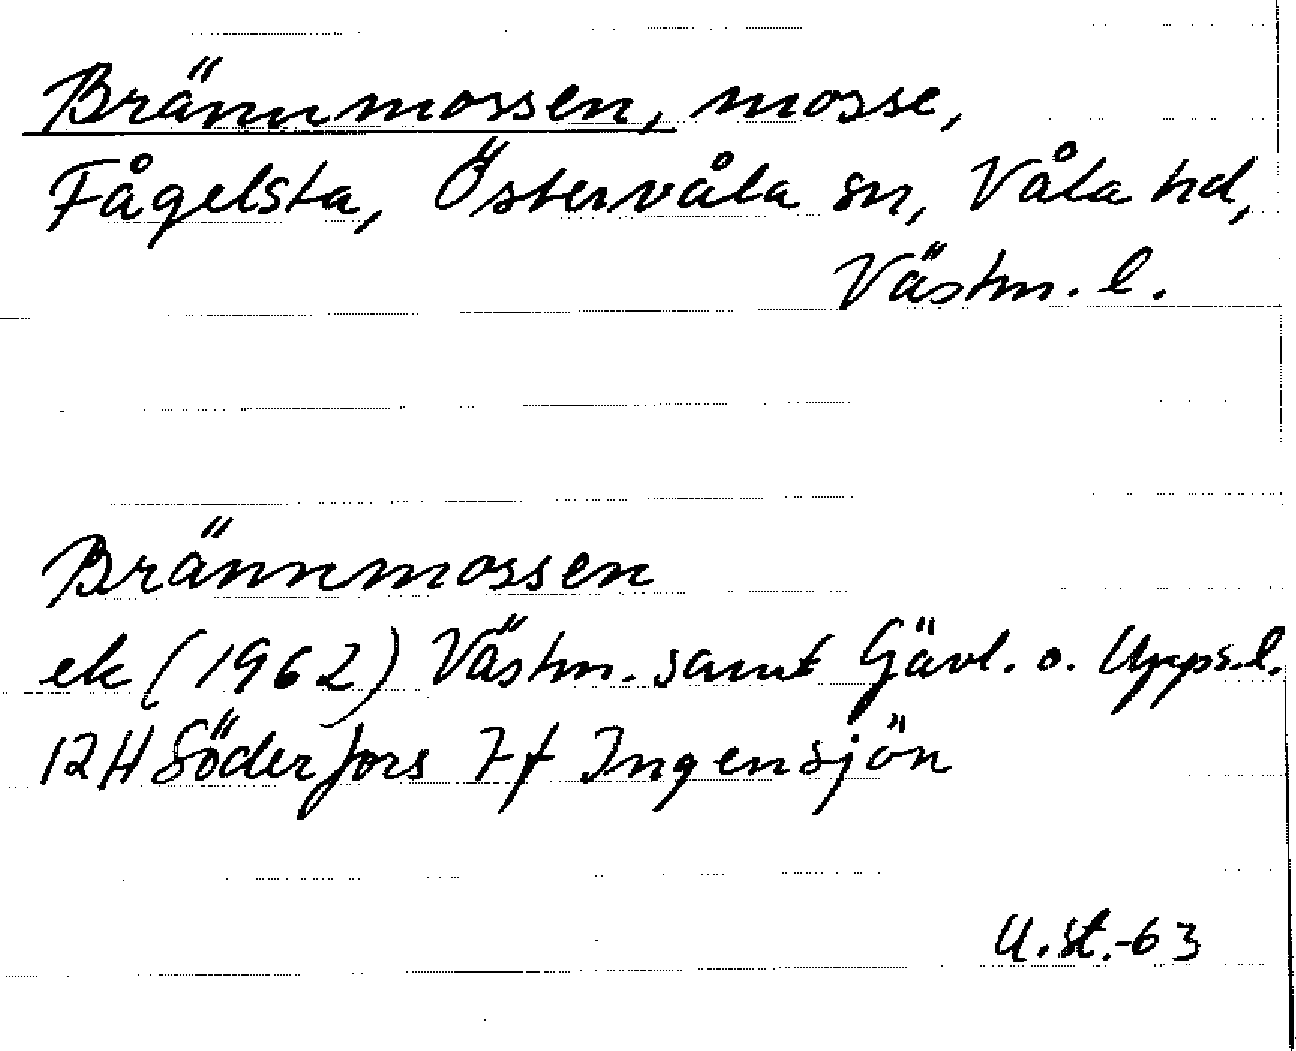 Brännmossen, mosse,
Fågelsta, Östervåla sn, Våla hd,
Västm. l.
Brännmossen
ek (1962) Västm. samt Gävl. o. Upps. l.
12H Söderfors 7f Ingensjön
U.St.-63